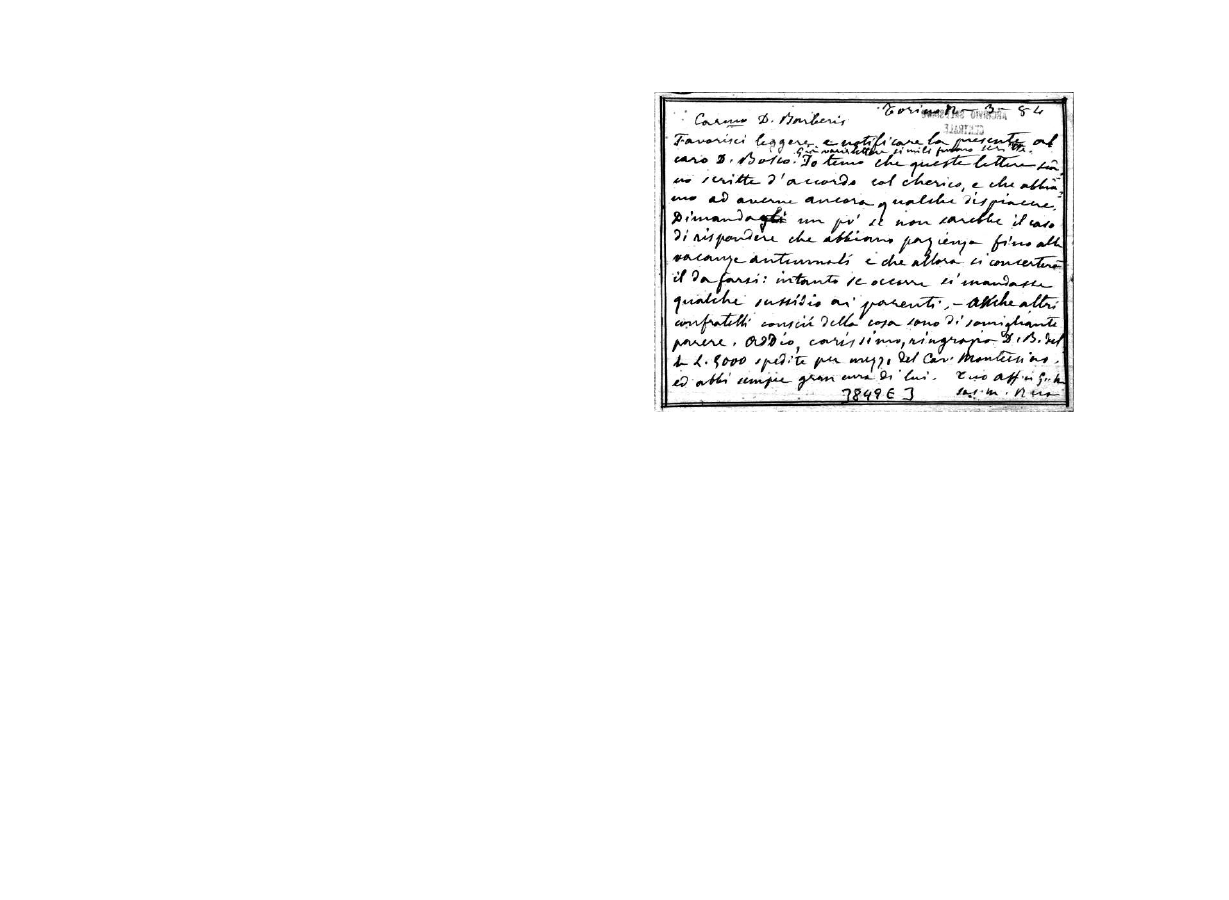 Torino 3 - 84
Car.mo D. Barberis
Favorisci leggere e notificare la presente al
Già varie lettere simili furono scritte.
caro D. Bosco. Io temo che queste lettere sia-
no scritte d'accordo col cherico, e che abbia-
mo ad averne ancora qualche dispiacere.
Dimandagli un po' se non sarebbe il caso
di rispondere che abbiano pazienza fino alle
vacanze autunnali e che allora si concerterà
il da farsi: intanto se occorre si mandasse
qualche sussidio ai parenti. - Anche altri
confratelli conscii della cosa sono di somigliante
parere. Addio, carissimo, ringrazia D. B. del
L. 5000 spedite per mezzo del Cav. Montessino.
ed abbi sempre gran cura di lui. Tuo Aff. in G.
Sac. M. Rua
3849 E 3
ARCHIVIO SALESIANO
CENTRALE